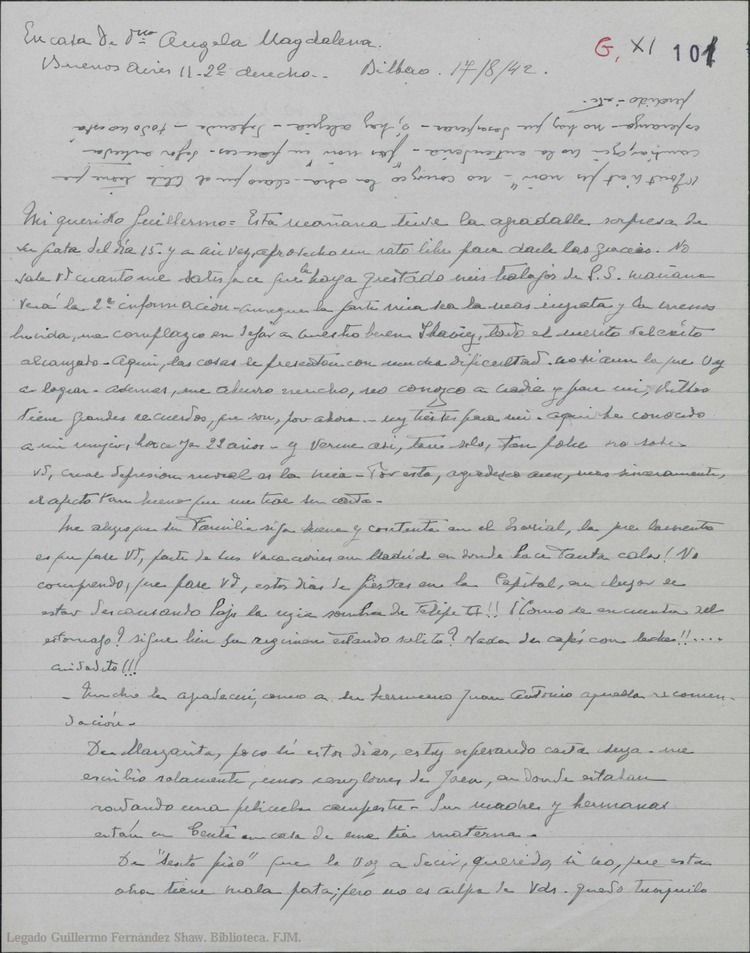 En casa de Dña Angela Magdalena.
Buenos Aires 11-2º derecha.. Bilbao. 17/8/42.
G, XI 101
conozco la obra - claro que el Club tiene que
no la entendería - por mon en frances -
esperanza - no hay que desesperar - Si, hay alegria - Depende - todo no esta
perdido - etc.
Mi querido Guillermo = Esta mañana tuve la agradable sorpresa de
su grata del día 15. y a mi vez, aprovecho un rato libre para darle las gracias. No
sabe Vd cuanto me satisface que le haya gustado mis trabajos de S.S. mañana
verá la 2ª información - aunque la parte mia sea la mas ingrata y la menos
lucida, me complazco en dejar a nuestro buen todo el merito del exito
alcanzado - Aqui, las cosas se presentan con mucha dificultad - no sé aun lo que voy
a lograr - ademas, me aburro mucho, no conozco a nadie y para mi, Bilbao
tiene grandes recuerdos, que son, por ahora - muy tristes para mi - aqui he conocido
a mi mujer, hace ya 22 años - y verme asi, tan solo, tan pobre no sabe
Vd, cual depresion moral es la mia - Por esto, agradezco aun, mas sinceramente,
el afecto tan bueno que me trae su carta -
Me alegro que su Familia siga buena y contenta en el Escorial, lo que lamento
es que pase Vd, parte de sus vacaciones en Madrid en donde hace tanta calor! No
comprendo, que pase Vd, estos dias de fiestas en la Capital, en lugar de
estar descansando bajo la regia sombra de Felipe II!! ¿Como se encuentra del
estomago? sigue bien su regimen estando solito? Nada de cafés con leche!!....
cuidadito!!!
- Mucho le agradecí, como a su hermano Juan Antonio aquella recomen-
dación -
De Margarita, poco sé estos dias, estoy esperando carta suya - me
escribio solamente, unos renglones de Jaca, en donde estaban
rodando una pelicula campestre - Su madre y hermanas
están en Ceuta en casa de una tia materna -
De "Sexto piso" que le voy a decir, querido, si no, que esta
obra tiene mala pata; pero no es culpa de Vds - quedo tranquilo
Legado Guillermo Fernández Shaw. Biblioteca. FJM.